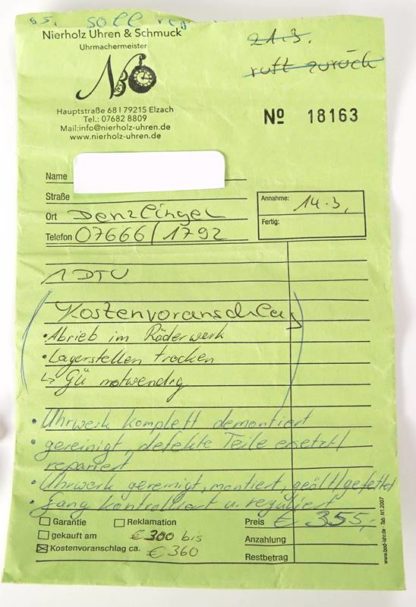 soll
Nierholz Uhren & Schmuck
Uhrmachermeister
21.3.
ruft zurück
Hauptstraße 68 I 79215 Elzach
Tel.: 07682 8809
Mail:info@nierholz-uhren.de
www.nierholz-uhren.de
No 18163
Name
Straße
Ort Denzlingen
Telefon 07666/1792
Annahme: 14.3.
Fertig:
1 DTU
Kostenvoranschlag
• Abrieb im Räderwerk
• Lagerstellen trocken
↳ GÜ notwendig
• Uhrwerk komplett demontiert
• gereinigt, defekte Teile ersetzt/
repariert
• Uhrwerk gereinigt, montiert, geölt/gefettet
• Gang kontrolliert u. reguliert
Garantie Reklamation
gekauft am
Kostenvoranschlag ca. € 300 bis
€ 360
Preis € 355,-
Anzahlung
Restbetrag